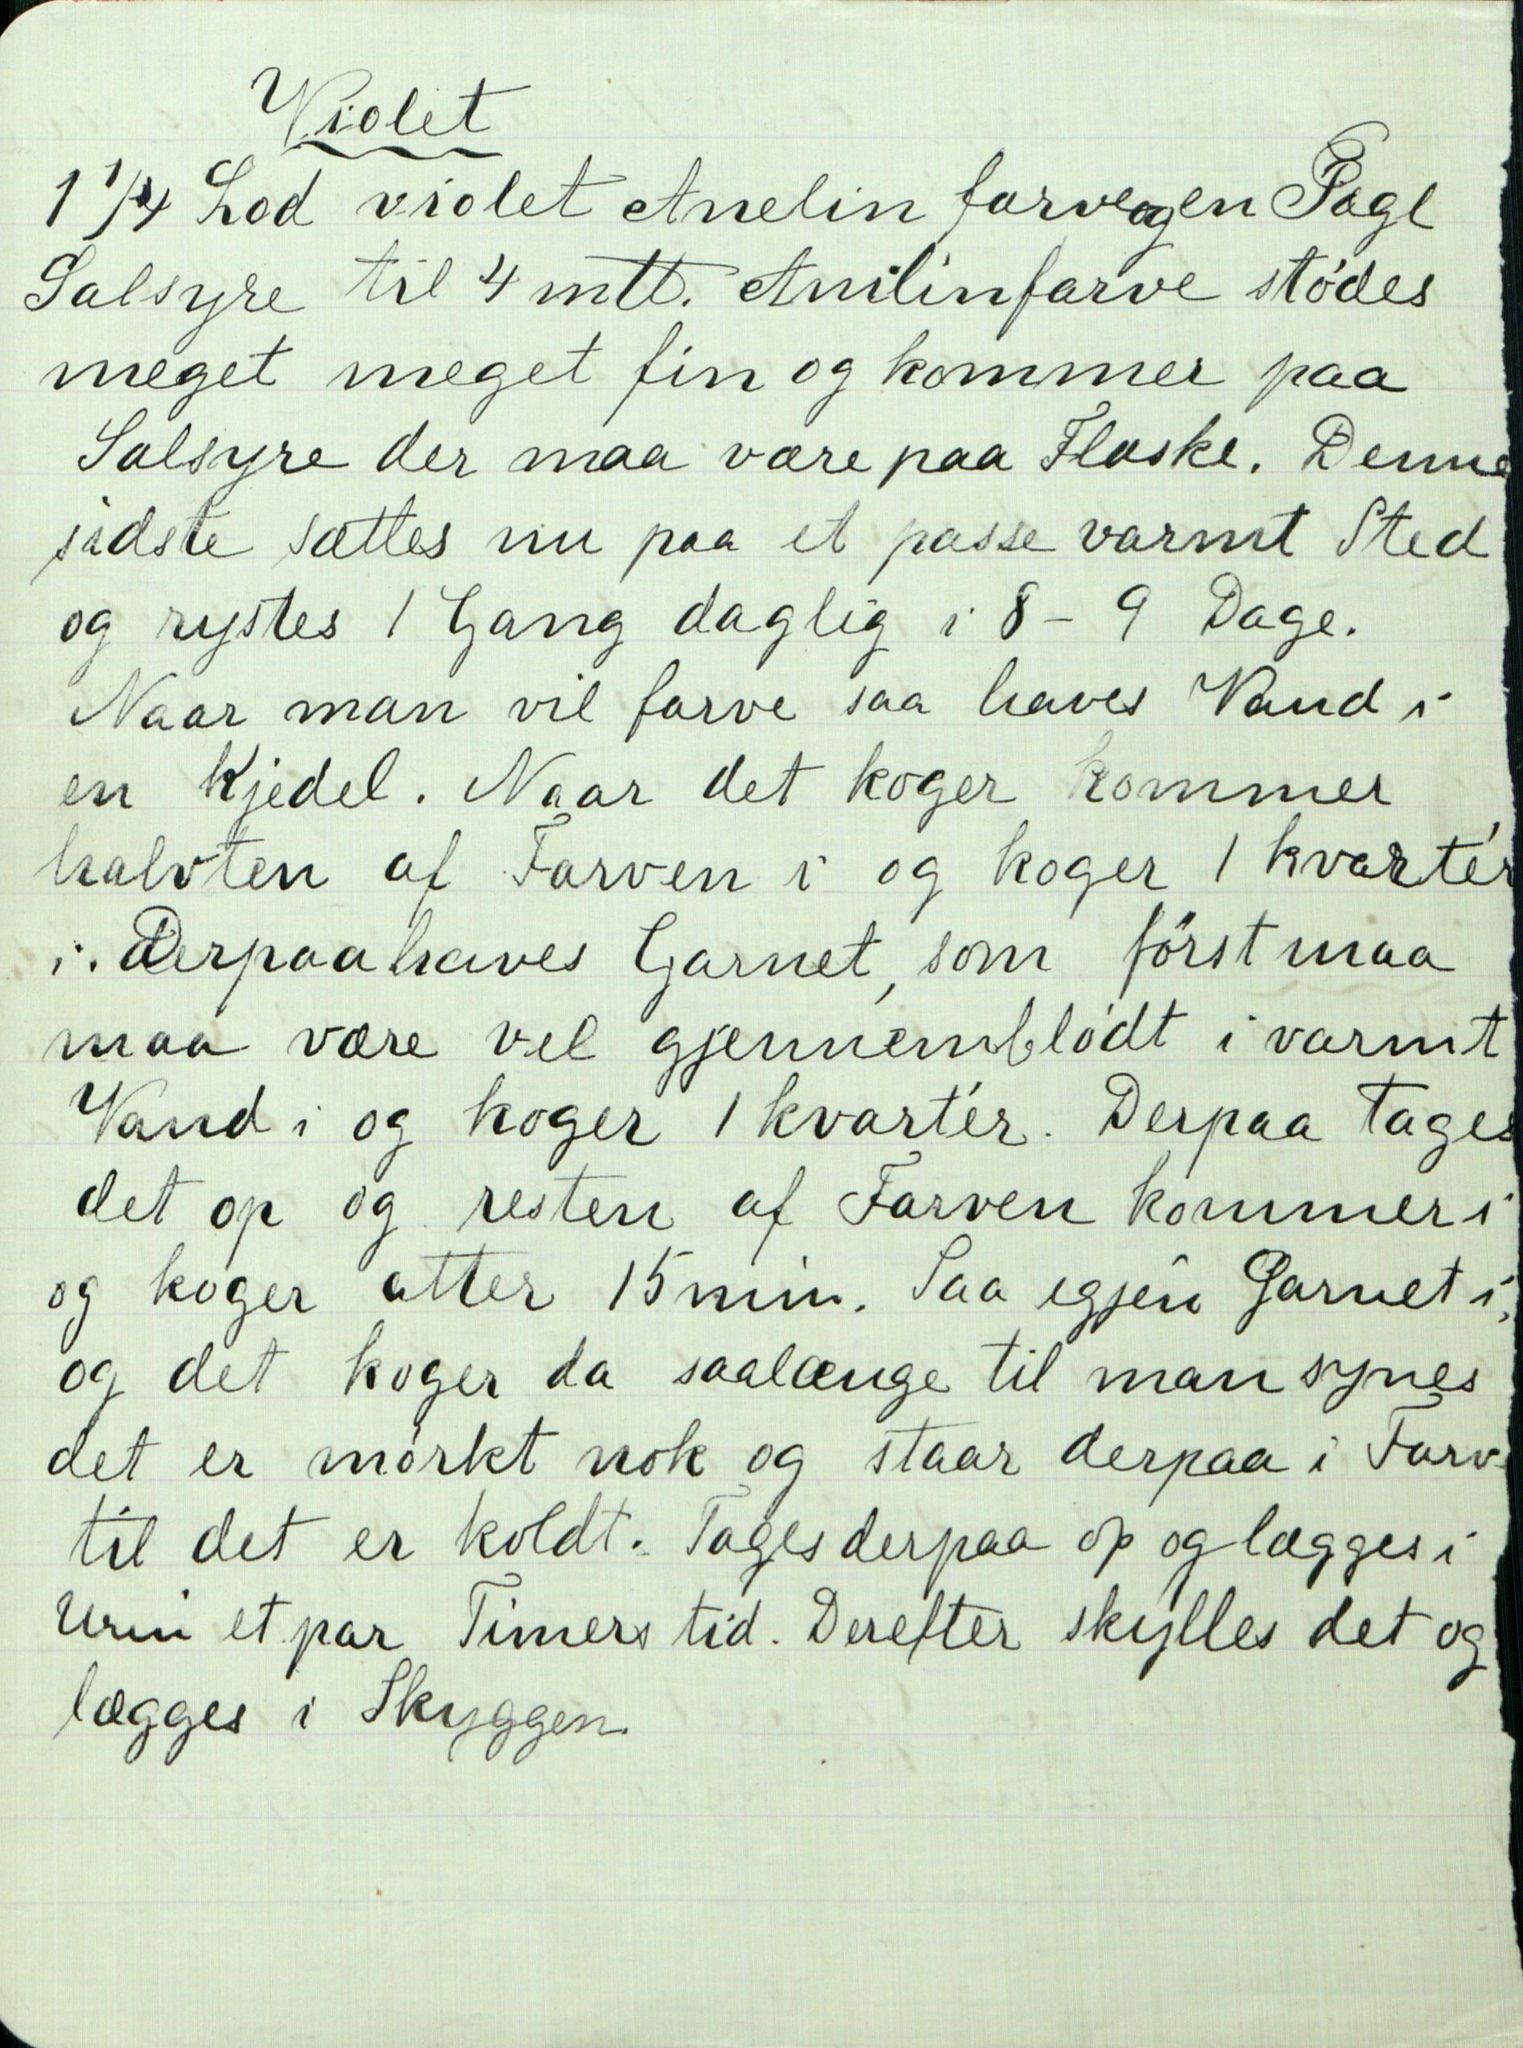 Violet
1 1/4 Lod violet Anelin farve og en Pægl
Salsyre til 4 mtt. Anilinfarve stødes
meget meget fin og kommer paa
Salsyre der maa være paa Flaske. Denne
sidste sættes nu paa et passe varmt Sted
og rystes 1 Gang daglig i 8 - 9 Dage.
Naar man vil farve saa haves Vand i
en Kjedel. Naar det koger kommer
halvten af Farven i og koger 1 kvartér
i. Derpaa haves Garnet, som først maa
maa være vel gjennemblødt i varmt
Vand i og koger 1 kvartér. Derpaa tages
det op og resten af Farven kommer i
og koger atter 15 min. Saa igjen Garnet i,
og det koger da saalænge til man synes
det er mørkt nok og staar derpaa i Farv
til det er koldt. Tages derpaa op og lægges i
Urin et par Timers tid. Derefter skylles det og
lægges i Skyggen.